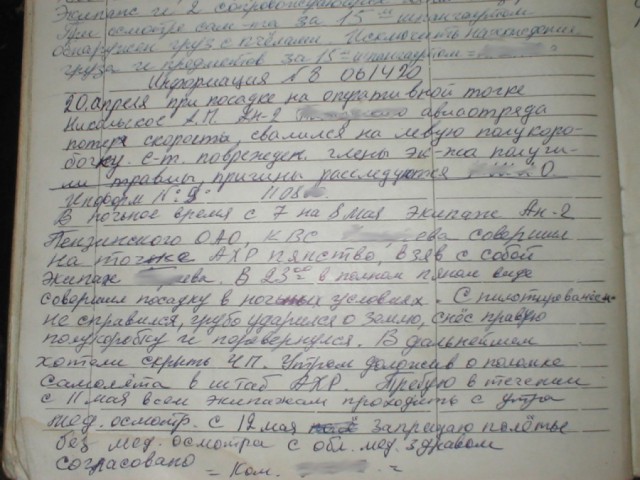 Экипаж и 2 сопровождающих
При осмотре сам-та за 15ым шпангоутом
обнаружен груз с пчёлами. Исключить нахождение
груза и предметов за 15ым шпангоутом =
Информация N 8 061420
20.апреля при посадке на оперативной точке
Никольское А.П. Ан-2 авиаотряда
потеря скорости, свалился на левую полукоро-
бочку. с-т. поврежден. члены эк-жа получи-
ли травмы, причины расследуются
Информ N: 9: 1108
В ночное время с 7 на 8 мая экипаж Ан-2
Пензинского ОАО, КВС ева совершил
на точке АХР пянство, взяв с собой
экипаж ева. В 23 00 в полном пяном виде
совершил посадку в ночных условиях. С пилотированием
не справился, грубо ударился о землю, снёс правую
полукоробку и перевернулся. В дальнейшем
хотели скрыть ЧП. Утром доложив о поломке
самолёта в штаб АХР. Требую в течении
с 11 мая всем экипажам проходить с утра
мед. осмотр. с 12 мая запрещаю полёты
без мед. осмотра с обл. мед. здравом
согласовано = Ком. =